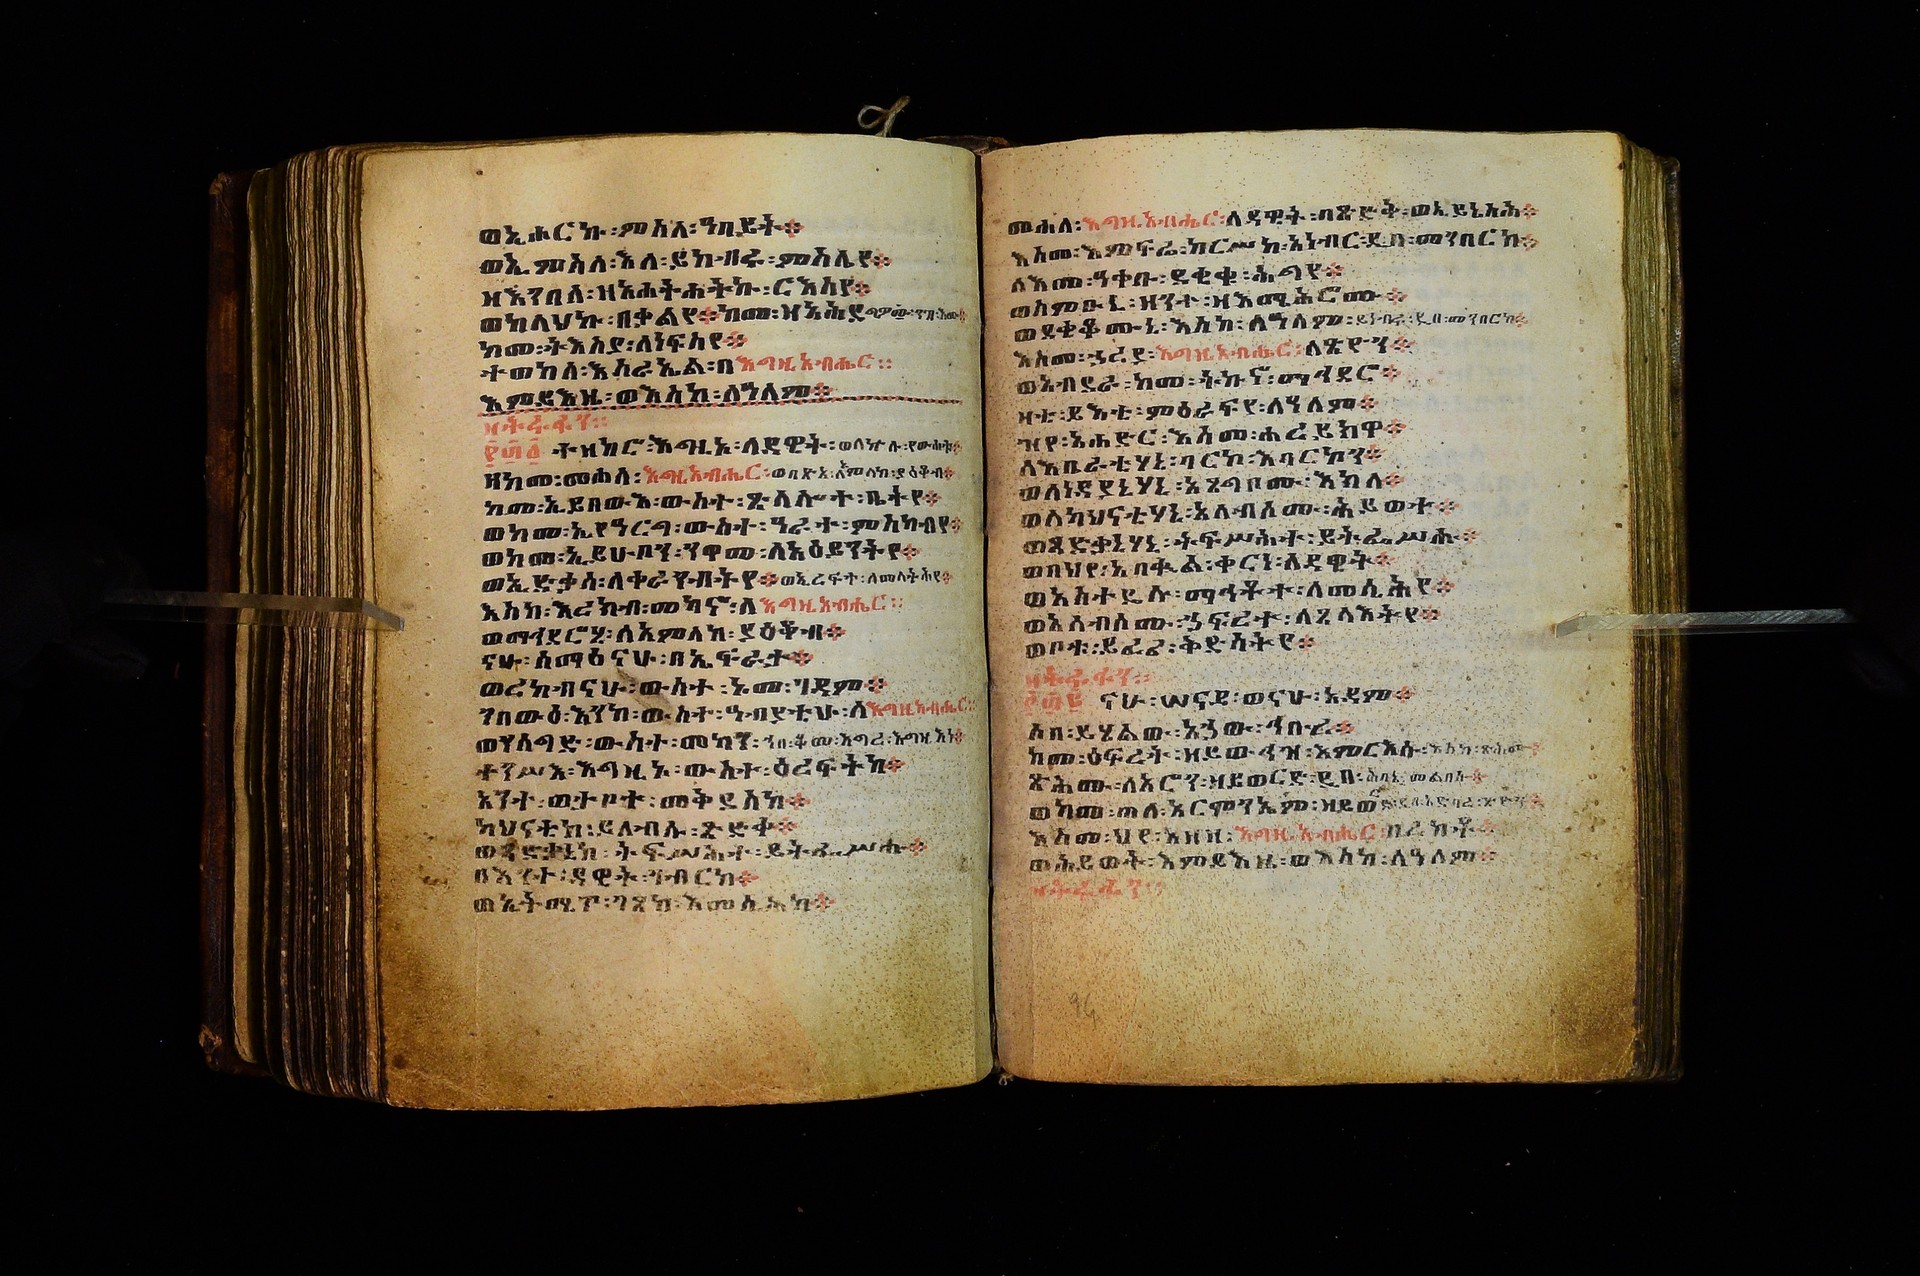 ወኢሖርኩ፡ምስለ፡ዓበይት፨
ወኢምስለ፡እለ፡ይከብሩ፡ምስሌየ፨
ዘእንበለ፡ዘአሕትሐትኩ፡ርእስየ፨
ወከላህኩ፡በቃልየ፨ከመ፡ዝአሕደግዎ፡
ከመ፡ትእስያ፡ለነፍስየ፨
ተወከለ፡እስራኤል፡በእግዚአብሔር፨
እምይእዜ፡ወእስከ፡ለዓለም፨
፻፴፩ ተዘከሮ፡እግዚኦ፡ለዳዊት፡ወለኵሉ፡የውሀቱ፨
ዘከመ፡መሐለ፡እግዚአብሔር፡ወበፅአ፡ለአምላከ፡ያዕቆብ፨
ከመ፡ኢይበውእ፡ውስተ፡ጽላሎተ፡ቤትየ፨
ወከመ፡ኢየዓርግ፡ውስተ፡ዓራተ፡ምስካብየ፨
ወከመ፡ኢይሁቦን፡ንዋመ፡ለአዕይንትየ፨
ወኢድቃሰ፡ለቀራንብትየ፨ወኢረፍተ፡ለመላትሕየ፨
እስከ፡እረክብ፡መካኖ፡ለእግዚአብሔር፨
ወማኅደሮሂ፡ለአምላከ፡ያዕቆብ፨
ናሁ፡ሰማዕናሁ፡በኤፍራታ፨
ወረከብናሁ፡ውስተ፡ኦመ፡ገዳም፨
ንበውዕ፡እንከ፡ውስተ፡ዓብያቲሁ፡ለእግዚአብሔር፨
ወንሰግድ፡ውስተ፡መካን፡ኀበ፡ቆመ፡እግረ፡እግዚእነ፨
ተንሥእ፡እግዚኦ፡ውስተ፡ዕረፍትከ፨
አንተ፡ወታቦተ፡መቅደስከ፨
ካህናቲከ፡ይለብሱ፡ጽድቀ፨
ወጻድቃኒከ፡ትፍሥሕተ፡ይትፌሥሑ፨
በእንተ፡ዳዊት፡ገብርከ፨
ወኢትሚጥ፡ገጸከ፡እመሲሕከ፨
መሐለ፡እግዚአብሔር፡ለዳዊት፡በጽድቅ፡ወኢይኔስሕ፨
እስመ፡እምፍሬ፡ከርሥከ፡አነብር፡ዲበ፡መንበርከ፨
ለእመ፡ዓቀቡ፡ደቂቁ፡ሕግየ፨
ወስምዑኒ፡ዝንተ፡ዘእሜሕሮሙ፨
ወደቂቆሙኒ፡እስከ፡ለዓለም፡ይነብሩ፡ዲበ፡መንበርከ፨
እስመ፡ኃረያ፡እግዚአብሔር፡ለጽዮን፨
ወአብደራ፡ከመ፡ትኩኖ፡ማኅደሮ፨
ዛቲ፡ይእቲ፡ምዕራፍየ፡ለዓለም፨
ዝየ፡አሐድር፡እስመ፡ሐረይክዋ፨
ለእቤራቲሃኒ፡ባርኮ፡እባርክን፨
ወለነዳያኒሃኒ፡አጸግቦሙ፡እክለ፨
ወለካህናቲሃኒ፡አለብሶሙ፡ሕይወተ፨
ወጻድቃኒሃኒ፡ትፍሥሕተ፡ይትፌሥሑ፨
ወበህየ፡አበቍል፡ቀርነ፡ለዳዊት፨
ወአስተዴሉ፡ማኅቶተ፡ለመሲሕየ፨
ወአለብሶሙ፡ኃፍረተ፡ለጸላእትየ፨
ወቦቱ፡ይፈሪ፡ቅድሳትየ፨
፻፴፪ ናሁ፡ሠናይ፡ወናሁ፡አዳም፨
ሶበ፡ይሄልው፡አኃው፡ኅቡረ፨
ከመ፡ዕፍረት፡ዘይውኅዝ፡እምርእሱ፡
ጽሕሙ፡ለአሮን፡ዘይወርድ፡ዲበ፡ሕባኔ፡መልበሱ፨
ወከመ፡ጠለ፡አርሞንኤም፡ዘይወርድ፡
እስመ፡ህየ፡አዘዘ፡እግዚአብሔር፡በረከቶ፨
ወሕይወት፡እምይእዜ፡ወእስከ፡ለዓለም፨